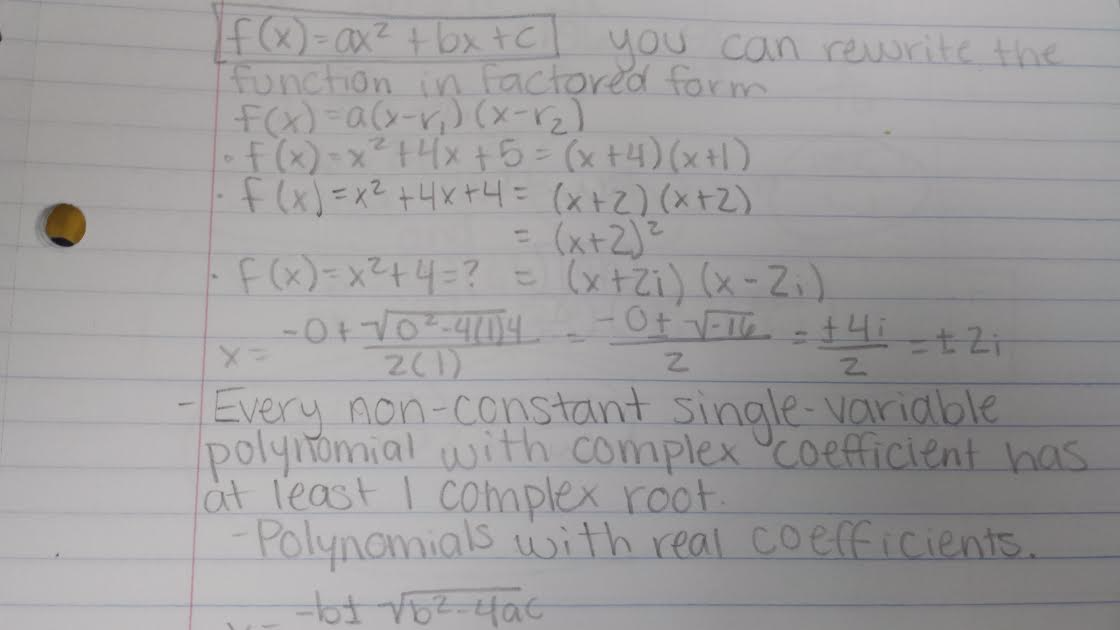 f(x)=ax² + bx + c you can rewrite the
function in factored form
f(x)=a(x-r₁)(x-r₂)
· f(x)=x²+4x+5=(x+4)(x+1)
· f(x)=x²+4x+4= (x+2)(x+2)
= (x+2)²
· f(x)=x²+4=? = (x+2i)(x-2i)
x= -0+√0²-4(1)4 / 2(1) = -0±√-16 / 2 = ±4i / 2 = ±2i
- Every non-constant single-variable
polynomial with complex coefficient has
at least 1 complex root.
- Polynomials with real coefficients.
-b±√b²-4ac